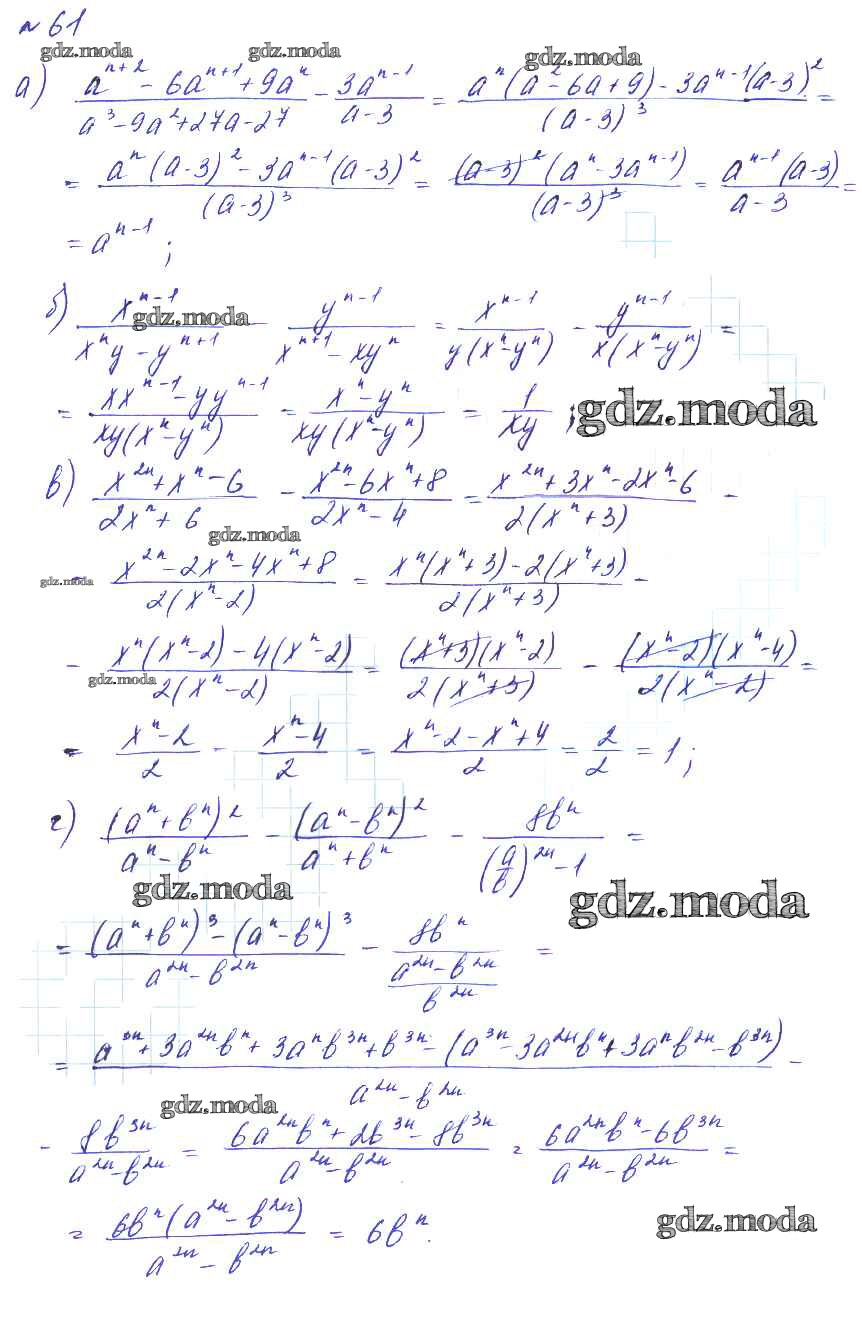 № 61
gdz.moda gdz.moda gdz.moda
а) (a^(n+2) - 6a^(n+1) + 9a^n)/(a^3 - 9a^2 + 27a - 27) - 3a^(n-1)/(a-3) = (a^n(a^2 - 6a + 9) - 3a^(n-1)(a-3)^2)/(a-3)^3 =
= (a^n(a-3)^2 - 3a^(n-1)(a-3)^2)/(a-3)^3 = ((a-3)^2(a^n - 3a^(n-1)))/(a-3)^3 = (a^(n-1)(a-3))/(a-3) =
= a^(n-1) ;
б) x^(n-1)/(x^n y - y^(n+1)) gdz.moda y^(n-1)/(x^(n+1) - xy^n) = x^(n-1)/(y(x^n - y^n)) - y^(n-1)/(x(x^n - y^n)) =
= (xx^(n-1) - yy^(n-1))/(xy(x^n - y^n)) = (x^n - y^n)/(xy(x^n - y^n)) = 1/(xy) ; gdz.moda
в) (x^(2n) + x^n - 6)/(2x^n + 6) - (x^(2n) - 6x^n + 8)/(2x^n - 4) = (x^(2n) + 3x^n - 2x^n - 6)/(2(x^n + 3)) -
gdz.moda
gdz.moda - (x^(2n) - 2x^n - 4x^n + 8)/(2(x^n - 2)) = (x^n(x^n + 3) - 2(x^n + 3))/(2(x^n + 3)) -
- (x^n(x^n - 2) - 4(x^n - 2))/(2(x^n - 2)) = ((x^n + 3)(x^n - 2))/(2(x^n + 3)) - ((x^n - 2)(x^n - 4))/(2(x^n - 2)) =
gdz.moda
= (x^n - 2)/2 - (x^n - 4)/2 = (x^n - 2 - x^n + 4)/2 = 2/2 = 1 ;
г) (a^n + b^n)^2/(a^n - b^n) - (a^n - b^n)^2/(a^n + b^n) - 8b^n/((a/b)^(2n) - 1) =
gdz.moda gdz.moda
= ((a^n + b^n)^3 - (a^n - b^n)^3)/(a^(2n) - b^(2n)) - 8b^n/((a^(2n) - b^(2n))/b^(2n)) =
= (a^(3n) + 3a^(2n)b^n + 3a^n b^(3n) + b^(3n) - (a^(3n) - 3a^(2n)b^n + 3a^n b^(2n) - b^(3n)))/(a^(2n) - b^(2n)) -
gdz.moda
- 8b^(3n)/(a^(2n) - b^(2n)) = (6a^(2n)b^n + 2b^(3n) - 8b^(3n))/(a^(2n) - b^(2n)) = (6a^(2n)b^n - 6b^(3n))/(a^(2n) - b^(2n)) =
= (6b^n(a^(2n) - b^(2n)))/(a^(2n) - b^(2n)) = 6b^n.
gdz.moda